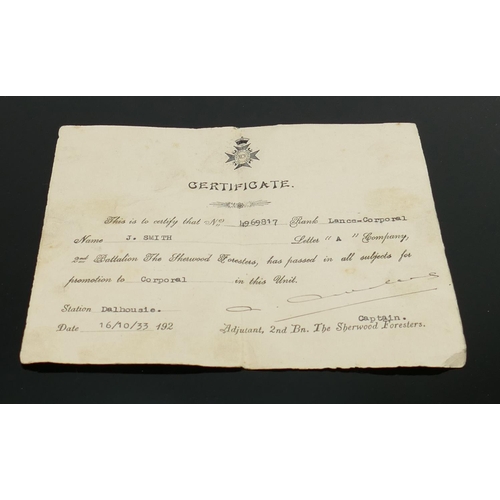 CERTIFICATE.
This is to certify that No 4969817 Rank Lance-Corporal
Name J. SMITH Letter "A" Company,
2nd Battalion The Sherwood Foresters, has passed in all subjects for
promotion to Corporal in this Unit.
Station Dalhousie.
Captain.
Date 16/10/33 192 Adjutant, 2nd Bn. The Sherwood Foresters.